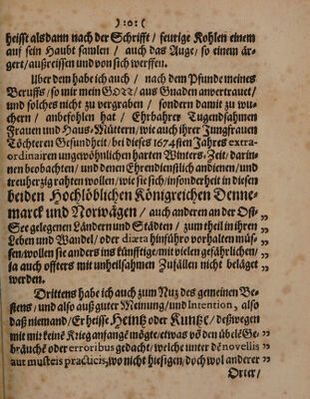 ):o:(
heisst alsdann nach der Schrifft / feurige Kohlen einem
auf sein Haubt samlen / auch das Auge / so einem är-
gert / außreissen und von sich werffen.
Uber dem habe ich auch / nach dem Pfunde meines
Beruffs / so mir mein GOTT / aus Gnaden anvertrauet /
und solches nicht zu vergraben / sondern damit zu wu-
chern / anbefohlen hat / Ehrbahrer Tugendsahmen
Frauen und Haus-Müttern / wie auch ihrer Jungfrauen
Töchteren Gesundheit / bei dieses 1674sten Jahres extra-
ordinairen ungewöhnlichen harten Winters-Zeit / darin-
nen beobachten / und denen Ehrendienstlich andienen / und
treuherzig rahten wollen / wie sie sich / insonderheit in diesen
beiden Hochlöblichen Königreichen Denne-
marck und Norwägen / auch anderen an der Ost-
See gelegenen Ländern und Städten / zum theil in ihren
Leben und Wandel / oder diæta hinführo vorhalten müs-
sen / wollen sie anders ins künfftige / mit vielen gefährlichen /
ja auch offters mit unheilsahmen Zufällen nicht beläget
werden.
Drittens habe ich auch zum Nuz des gemeinen Be-
stens / und also auß guter Meinung / und Intention, also
daß niemand / Er heisse Heintz oder Kuntze / deßwegen
mit mir keine Krieg anfange möge / etwas vō den übelē Ge-
bräuchē oder erroribus gedacht / welche unter dē novellis
aut musteis practicis, wo nicht hiesigen / doch wol anderer
Orter /